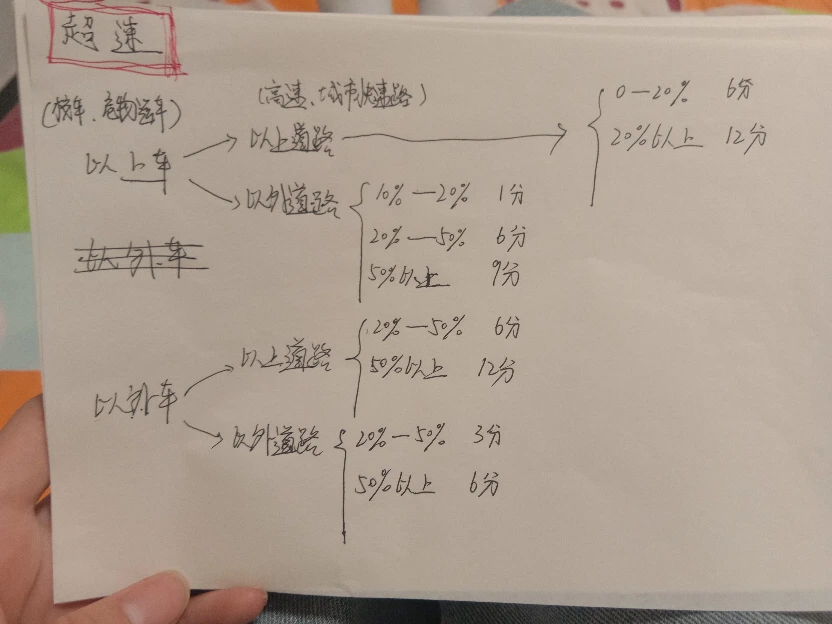 超速
(校车、危物运车)
(高速、城市快速路)
以上车
以上道路
0—20% 6分
20%以上 12分
以外道路
10%—20% 1分
20%—50% 6分
50%以上 9分
以外车
以外车
以上道路
20%—50% 6分
50%以上 12分
以外道路
20%—50% 3分
50%以上 6分